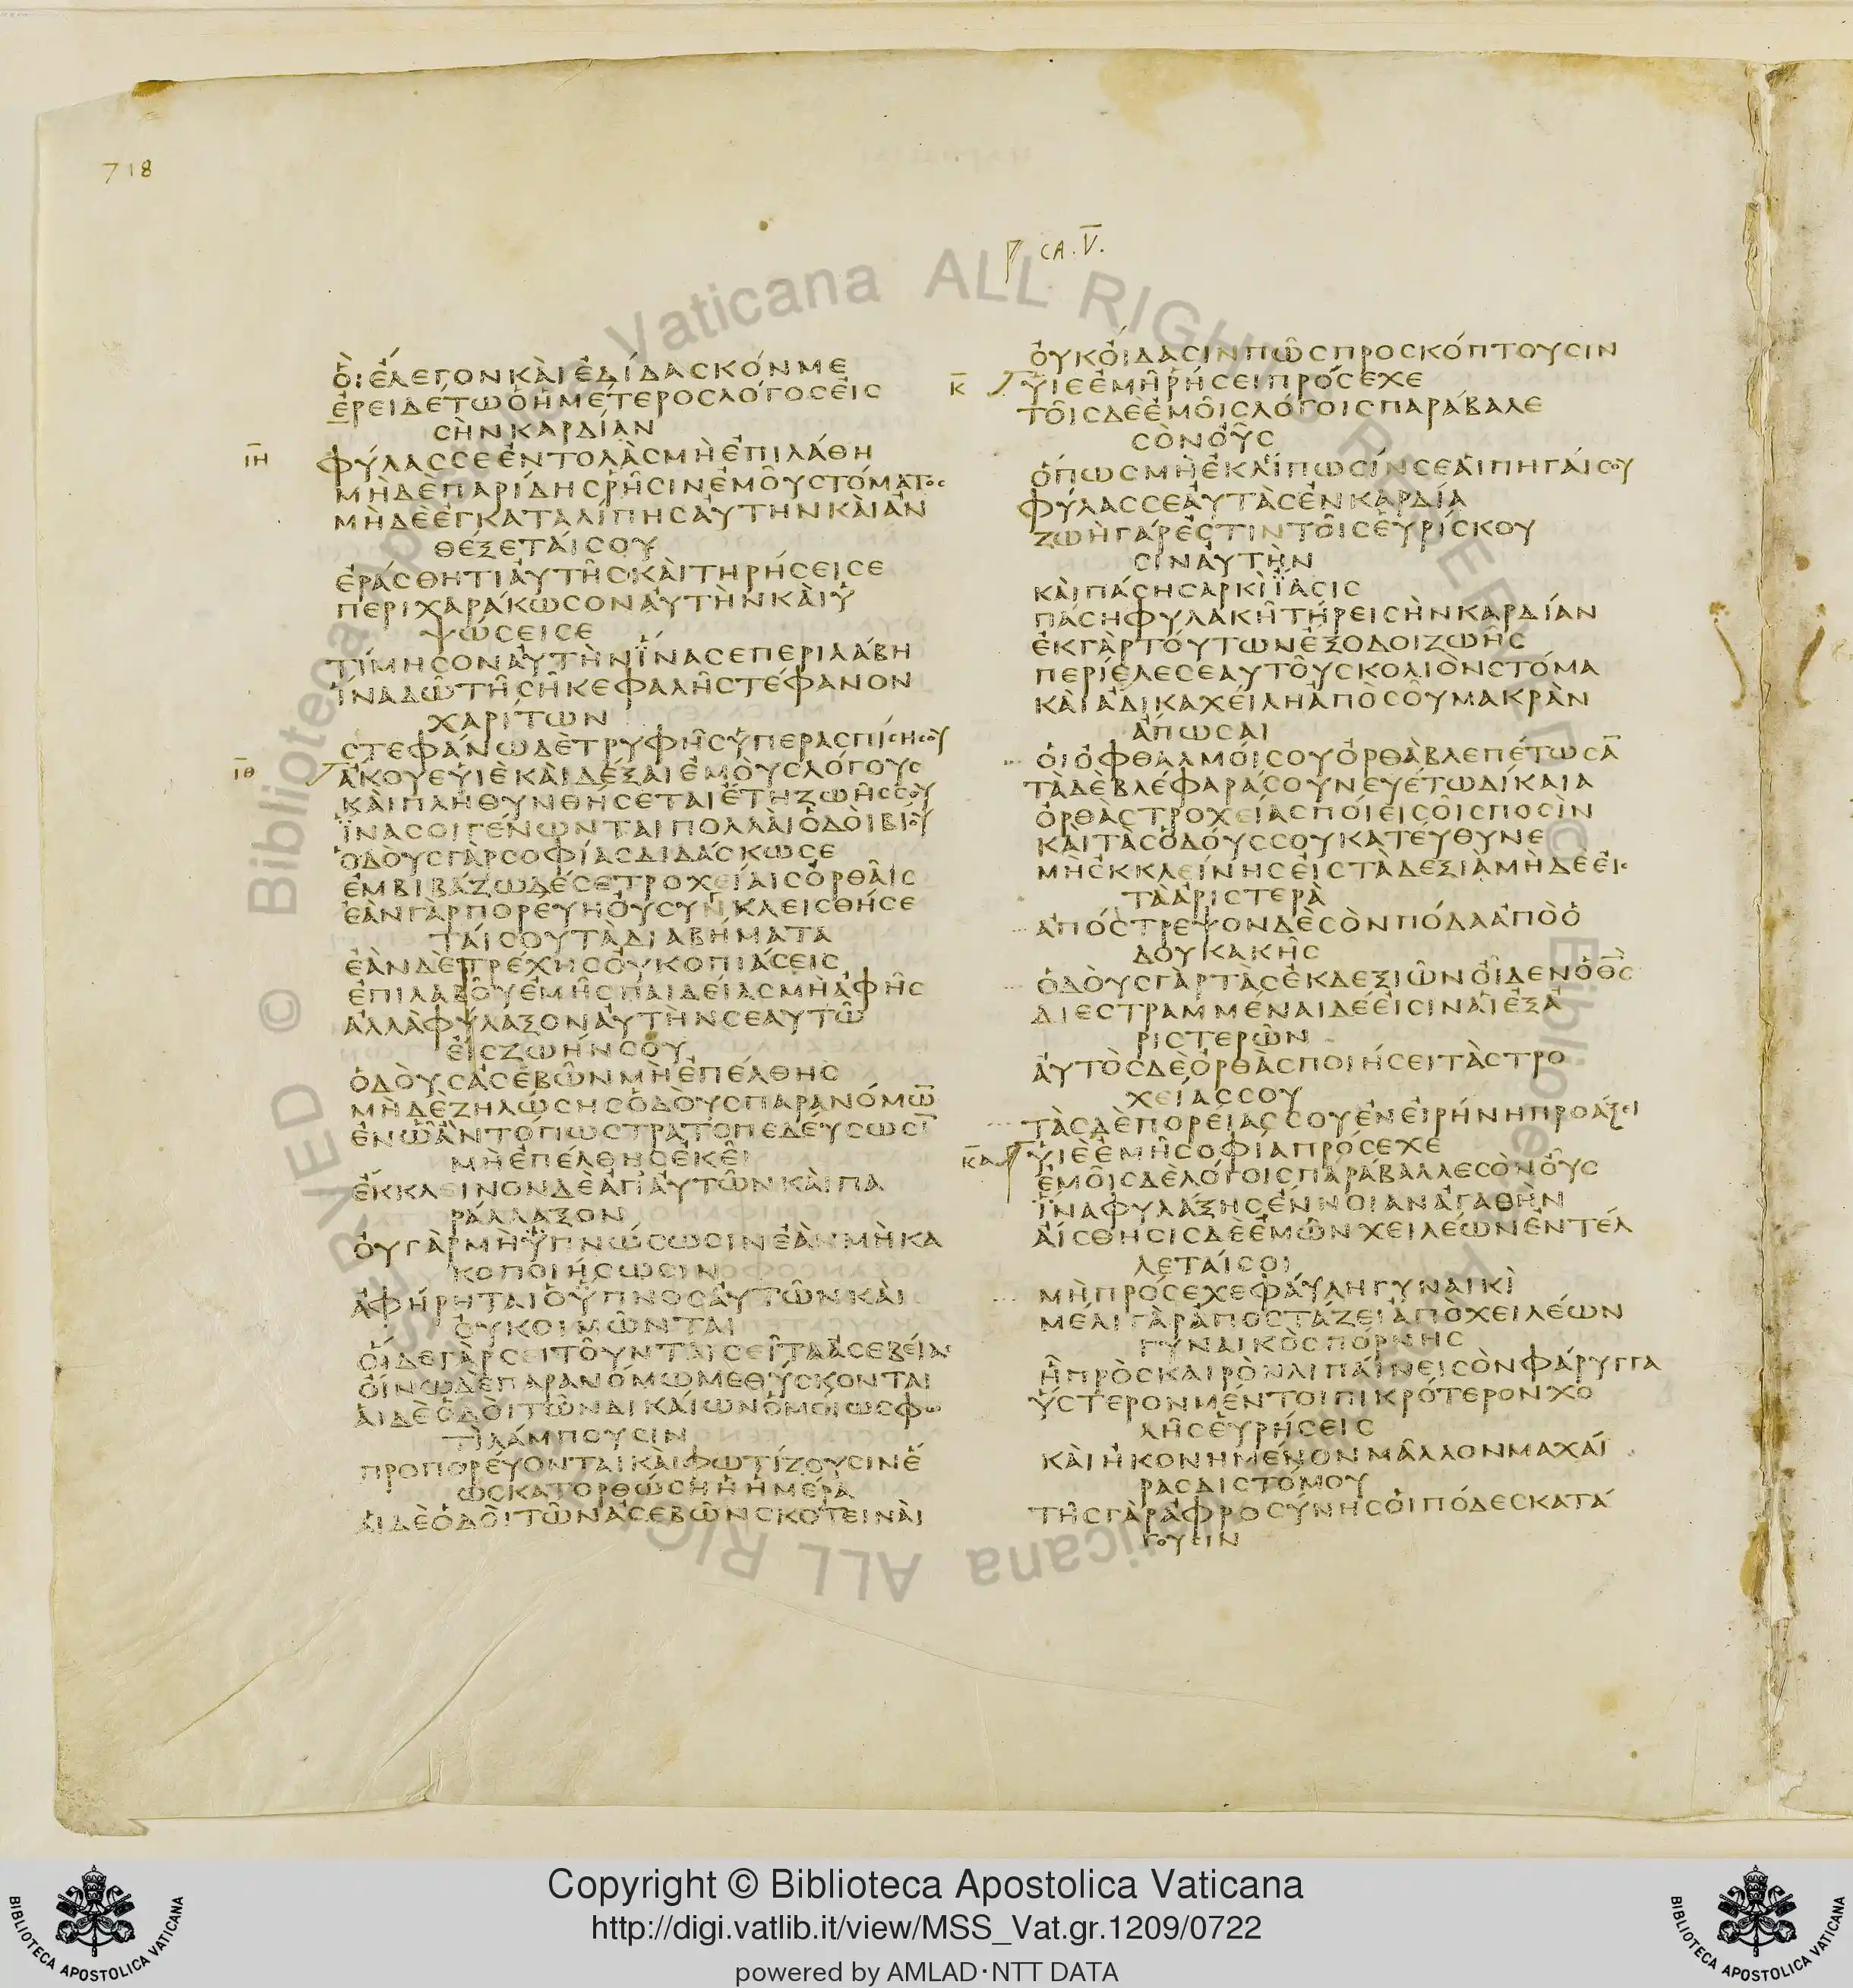 718
ca. V.
ὃι ἔλεγον κὰι ἐδίδασκόν με
ἐρειδέτω ὁ ἡμέτερος λόγος εἰς
σὴν καρδίαν
ιη
φύλασσε ἐντολὰς μὴ ἐπιλάθη
μὴ δὲ παρίδης ῥῆσιν ἐμοῦ στόματος
μὴ δὲ ἐγκαταλίπης αὐτὴν κὰι ἀν
θέξεταί σου
ἐράσθητι αὐτῆς κὰι τηρήσει σε
περιχαράκωσον αὐτὴν κὰι ὑ
ψώσει σε
τίμησον αὐτὴν ἵνα σε περιλάβη
ἵνα δῶ τῆ σῆ κεφαλῆ στέφανον
χαρίτων
στεφάνω δὲ τρυφῆς ὑπερασπίσησου
ιθ
ἄκουε υἱὲ κὰι δέξαι ἐμοὺς λόγους
κὰι πληθυνθήσεται ἔτη ζωῆς σου
ἵνα σοι γένωνται πολλαὶ ὁδοὶ βίου
ὁδοὺς γὰρ σοφίας διδάσκω σε
ἐμβιβάζω δέ σε τροχείαις ὀρθαῖς
ἐὰν γὰρ πορεύη οὐ συνκλεισθήσε
ταί σου τὰ διαβήματα
ἐὰν δὲ τρέχης οὐ κοπιάσεις
ἐπιλαβοῦ ἐμῆς παιδείας μὴ ἀφῆς
ἀλλὰ φύλαξον αὐτὴν σεαυτῶ
εἰς ζωήν σου
ὁδοὺς ἀσεβῶν μὴ ἐπέλθης
μὴ δὲ ζηλώσης ὁδοὺς παρανόμω̅
ἐν ὧ ἂν τόπω στρατοπεδεύσωσῑ
μὴ ἐπέλθης ἐκεῖ
ἔκκλεινον δὲ ἀπ' αὐτῶν κὰι πα
ράλλαξον
οὐ γὰρ μὴ ὑπνώσωσιν ἐὰν μὴ κα
κοποιήσωσιν
ἀφήρηται ὁ ὕπνος αὐτῶν κὰι
οὐ κοιμῶνται
οἵδε γὰρ σειτοῦνται σεῖτα ἀσεβείας
οἴνω δὲ παρανόμω μεθύσκονται
αἱ δὲ ὁδοὶ τῶν δικαίων ὁμοίως φω
τὶ λάμπουσιν
προπορεύονται κὰι φωτίζουσιν ἕ
ως κατορθώση ἡ ἡμέρα
αἱ δὲ ὁδοὶ τῶν ἀσεβῶν σκοτειναὶ
οὐκ οἴδασιν πῶς προσκόπτουσιν
κ
υἱὲ ἐμῆ ῥήσει πρόσεχε
τοῖς δὲ ἐμοῖς λόγοις παράβαλε
σὸν οὖς
ὅπως μὴ ἐκλίπωσίν σε αἱ πηγαί σου
φύλασσε αὐτὰς ἐν καρδία
ζωὴ γάρ ἐστιν τοῖς εὑρίσκου
σιν αὐτὴν
κὰι πάση σαρκὶ ἴασις
πάση φυλακῆ τήρει σὴν καρδίαν
ἐκ γὰρ τούτων ἔξοδοι ζωῆς
περίελε σεαυτοῦ σκολιὸν στόμα
κὰι ἄδικα χείλη ἀπὸ σοῦ μακρὰν
ἄπωσαι
οἱ ὀφθαλμοί σου ὀρθὰ βλεπέτωσᾱ
τὰ δὲ βλέφαρά σου νευέτω δίκαια
ὀρθὰς τροχείας ποίει σοῖς ποσὶν
κὰι τὰς ὁδούς σου κατεύθυνε
μὴ ἐκκλείνης εἰς τὰ δεξιὰ μὴ δὲ εἰς
τὰ ἀριστερὰ
ἀπόστρεψον δὲ σὸν πόδα ἀπὸ ὁ
δοῦ κακῆς
ὁδοὺς γὰρ τὰς ἐκ δεξιῶν οἶδεν ὁ θ̅ς̅
διεστραμμέναι δέ εἰσιν αἱ ἐξ ἀ
ριστερῶν
αὐτὸς δὲ ὀρθὰς ποιήσει τὰς τρο
χείας σου
τὰς δὲ πορείας σου ἐν εἰρήνη προάξει
κα
υἱὲ ἐμῆ σοφία πρόσεχε
ἐμοῖς δὲ λόγοις παράβαλλε σὸν οὖς
ἵνα φυλάξης ἔννοιαν ἀγαθὴν
αἴσθησις δὲ ἐμῶν χειλέων ἐντέλ
λεταί σοι
μὴ πρόσεχε φαύλη γυναικὶ
μέλι γὰρ ἀποστάζει ἀπὸ χειλέων
γυναικὸς πόρνης
ἣ πρὸς καιρὸν λιπαίνει σὸν φάρυγγα
ὕστερον μέντοι πικρότερον χο
λῆς εὑρήσεις
κὰι ἠκονημένον μᾶλλον μαχαί
ρας διστόμου
τῆς γὰρ ἀφροσύνης οἱ πόδες κατά
γουσιν
Copyright © Biblioteca Apostolica Vaticana
http://digi.vatlib.it/view/MSS_Vat.gr.1209/0722
powered by AMLAD·NTT DATA
BIBLIOTECA APOSTOLICA VATICANA
BIBLIOTECA APOSTOLICA VATICANA